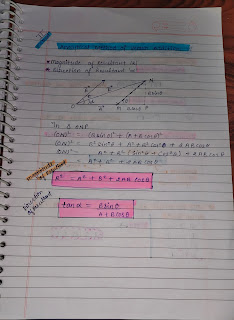 Analytical method of vector addition
• magnitude of resultant (R)
• direction of resultant (α)
In Δ ONP
(ON)² = (B sinθ)² + (A + B cosθ)²
(ON)² = B² sin²θ + A² + B² cos²θ + 2AB cosθ
(ON)² = A² + B² (sin²θ + cos²θ) + 2AB cosθ
= A² + B² + 2AB cosθ
magnitude of resultant
R² = A² + B² + 2AB cosθ
direction of resultant
tanα = B sinθ
A + B cosθ